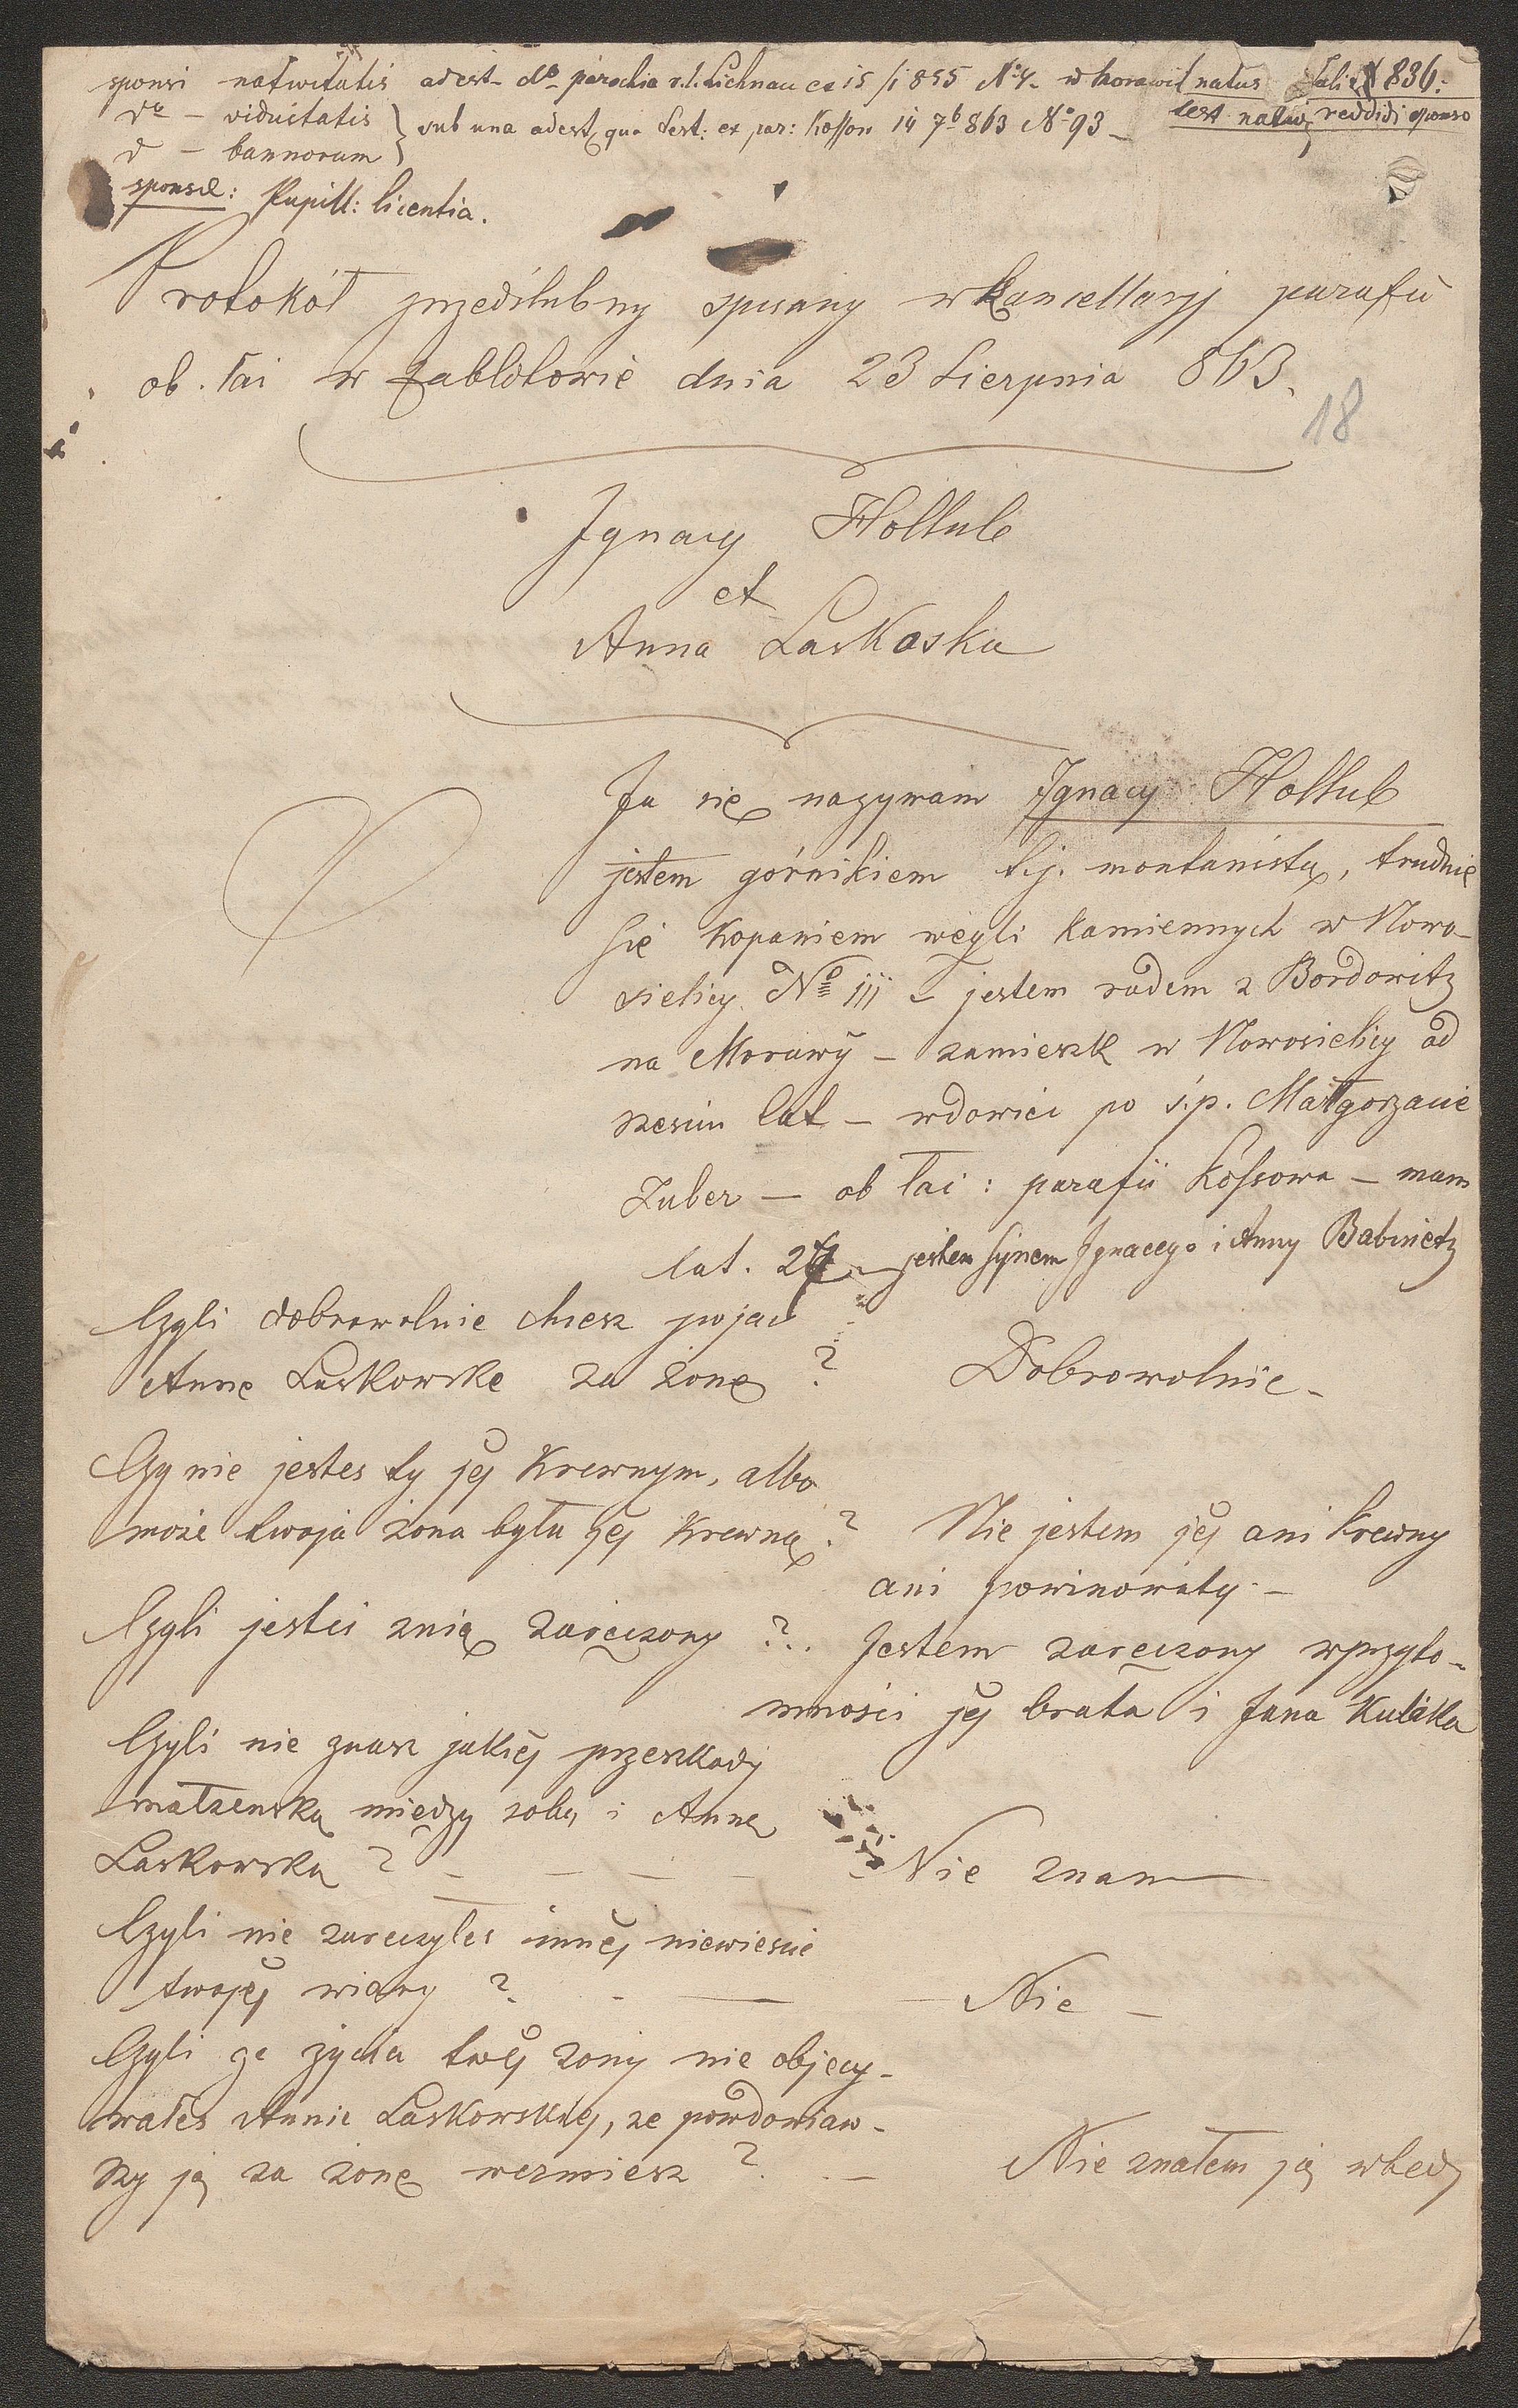 sponsi nativitatis adest dto parochia r.l. Lichnau ex 15/1 855 No 4. natus 836.
dto – viduitatis } sub una adest, qua test: ex par: Kosson 14 7b 863 No 93 – test nativ, reddidi sponso
d – bannorum
sponsæ: Pupill: licentia.
Protokół przedślubny spisany w kancellaryj parafii
ob. łai w Zabłotowie dnia 23 Sierpnia 863.
18
Ignacy Holtub
et
Anna Laskoska
Ja się nazywam Ignacy Holtub
jestem górnikiem t.j. montanistą, trudnie
się kopaniem węgli kamiennych w Nowo-
sielicy No 111 – jestem rodem z Bordowitz
na Morawÿ – zamieszk w Nowosielicy od
sześciu lat – wdowiec po ś.p. Małgorzacie
Zuber – ob łai: parafii Kossowa – mam
lat. 27 – jestem Synem Ignacego i Anny Babinetz
Czyli dobrowolnie chcesz pojąć
Anne Laskowskę za żonę ? Dobrowolnie –
Czy nie jestes ty jej krewnym, albo
może twoja żona była jej krewną ? Nie jestem jej ani krewny
ani powinowaty. –
Czyli jesteś znią zaręczony ?.. Jestem zaręczony wprzyto-
mności jej brata i Jana Kulika
Czyli nie znasz jakiéj przeszkody
małzenską między sobą i Anną
Laskowską ? – – – – Nie znam
Czyli nie zareczyłes innej niewieście
twojéj wiary ? – – – Nie –
Czyli ze życia twéj żony nie objecy-
wałeś Annie Laskowskiej, że powdowiaw-
szy ją za żonę weźmiesz ? – Nie znałem ją wtedy